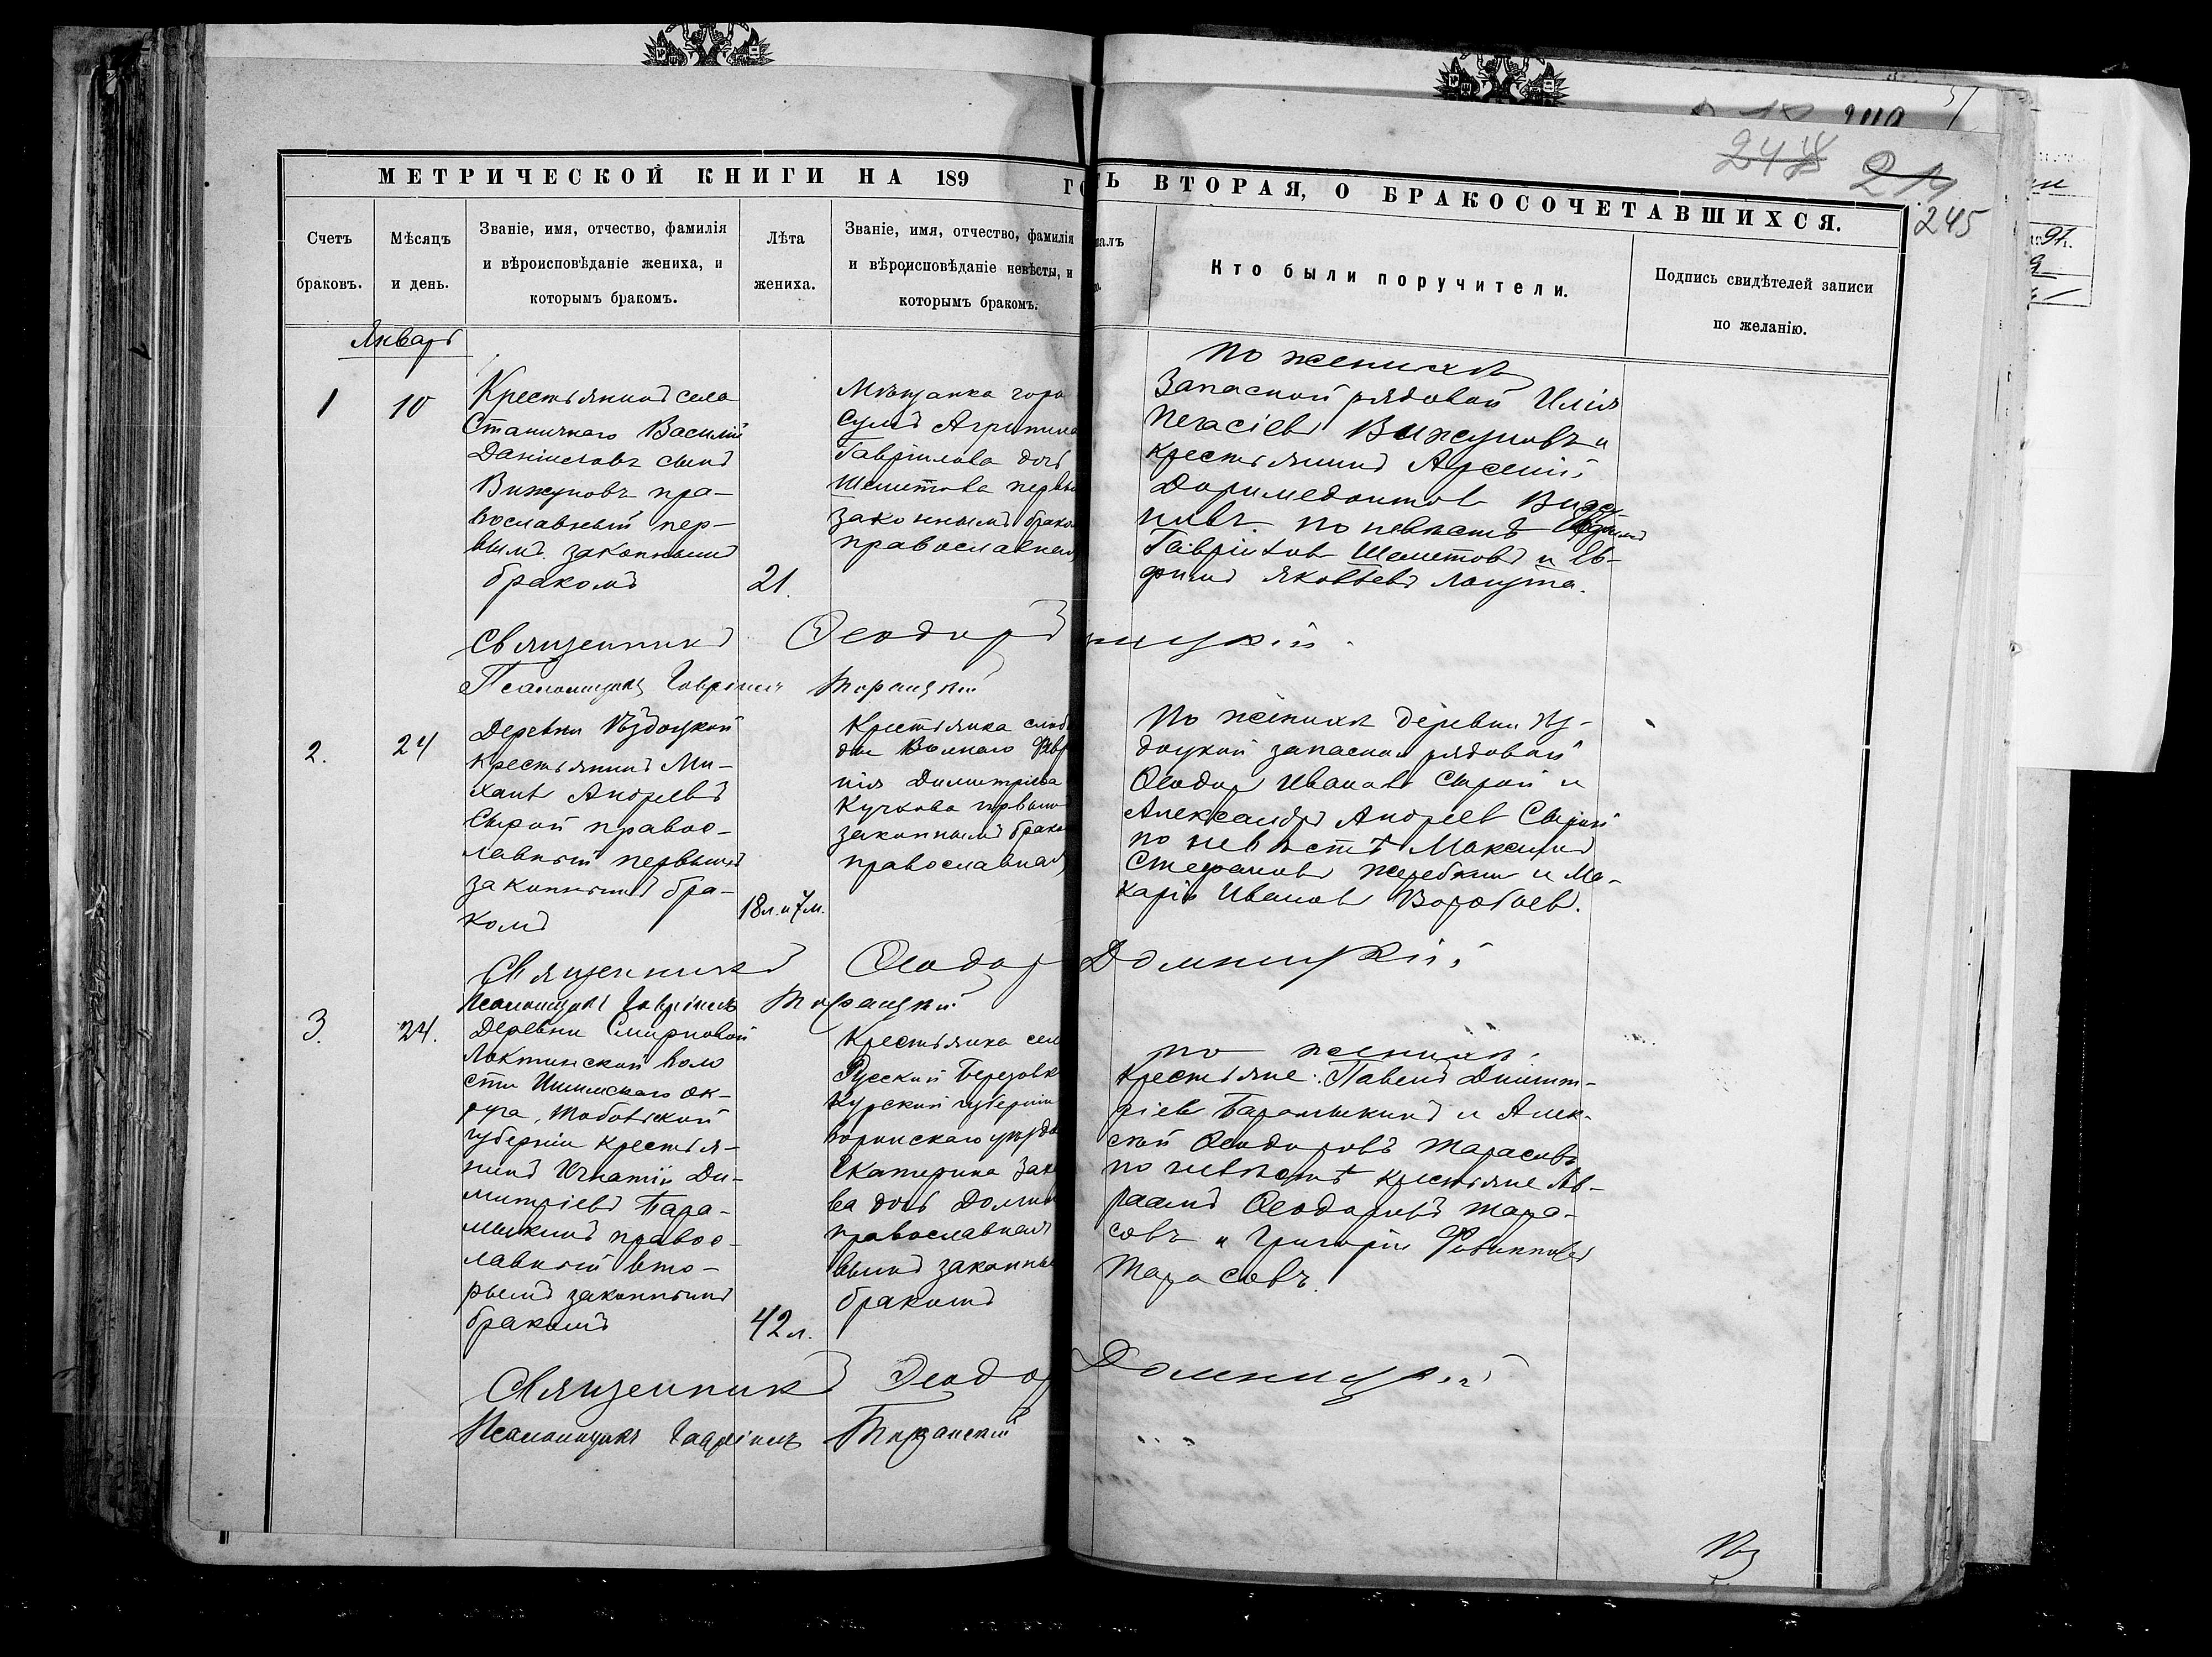 МЕТРИЧЕСКОЙ КНИГИ НА 189
ГО
Ь ВТОРАЯ, О БРАКОСОЧЕТАВШИХСЯ.
245
Счетъ браковъ.
Мѣсяцъ и день.
Званіе, имя, отчество, фамилія
и вѣроисповѣданіе жениха, и
которымъ бракомъ.
Лѣта жениха.
Званіе, имя, отчество, фамилія
и вѣроисповѣданіе невѣсты, и
которымъ бракомъ.
Кто были поручители.
Подпись свидѣтелей записи
по желанію.
Январь
1
10
Крестьянинъ села
Станичнаго Василій
Даніиловъ сынъ
Вижуновъ пра-
вославный пер-
вымъ законнымъ
бракомъ
21.
Мѣщанка горо
Сумъ Агрипина
Гавріилова дочь
Шеметова первы
законнымъ брако
православная
по женихѣ
Запасной рядовой Илія
Вижуновъ и
крестьянинъ Арсеній
Доримедонтов
по невѣстѣ
Гавріилов Шеметовъ и Ев-
фимъ Яковлевъ Лагута.
Священникъ Ѳеодоръ ницкій.
Псаломщикъ Гавріилъ
2.
24
Деревни
крестьянинъ Ми-
хаил Андреевъ
Сырой правос-
лавный первымъ
законнымъ бра-
комъ
18 л. и 7 м.
Крестьянка слоб
Димитріева
Кучкова первымъ
законнымъ брако
православная
По женихѣ деревни
запасной рядовой
Ѳеодоръ Иванов Сырой и
Александръ Андреев Сырой
по невѣстѣ Максимъ
Стефановъ Жеребкин и Ма-
карій Иванов Воробьев.
Священникъ Ѳеодор Домницкій
Псаломщикъ Гавріилъ
3.
24.
Деревни Смирновой
Локтинской воло
сти Ишимскаго ок-
руга, Тобольской
губерніи крестья-
нинъ Игнатій Ди-
митріевъ Бара-
мыкинъ правос-
лавный вто-
рымъ законнымъ
бракомъ
42 л.
Крестьянка села
Русской Березовк
Курской губерніи
уѣзда
Екатерина Зах
ва дочь Должи
православная
вымъ законны
бракомъ
по женихѣ
Крестьяне: Павелъ Димит-
ріев Барамыкинъ и Алек-
сѣй Ѳеодоровъ Тарасовъ
по невѣстѣ крестьяне Ав-
раамъ Ѳеодоровъ Тара-
совъ и Григорій Филипповъ
Тарасовъ.
Священникъ Ѳеодор Домницкій
Псаломщикъ Гавріилъ